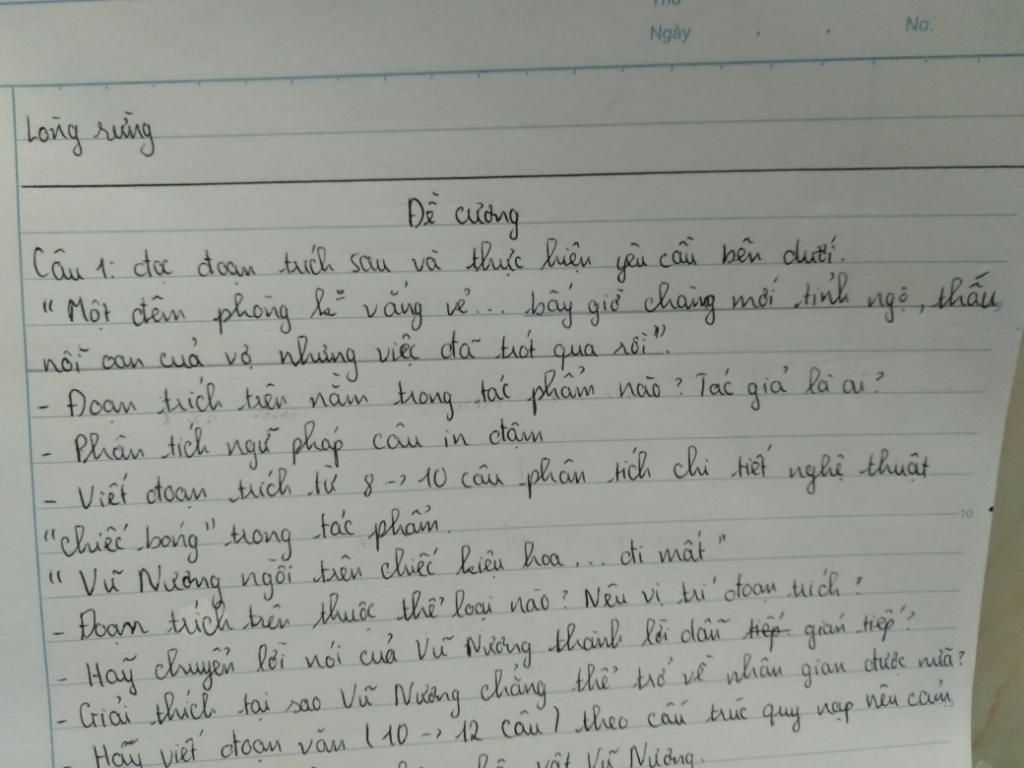 Thứ
Ngày . . No.
Lòng rừng
Đề cương
Câu 1: đọc đoạn trích sau và thực hiện yêu cầu bên dưới.
" Một đêm phòng k vắng vẻ... bấy giờ chàng mới tỉnh ngộ, thấu
nỗi oan của vợ nhưng việc đã trót qua rồi".
- Đoạn trích trên nằm trong tác phẩm nào? Tác giả là ai?
- Phân tích ngữ pháp câu in đậm
- Viết đoạn trích từ 8 -> 10 câu phân tích chi tiết nghệ thuật
"chiếc bóng" trong tác phẩm.
10
" Vũ Nương ngồi trên chiếc kiệu hoa... đi mất"
- Đoạn trích trên thuộc thể loại nào? Nêu vị trí đoạn trích?
- Hãy chuyển lời nói của Vũ Nương thành lời dẫn tiếp gián tiếp?
- Giải thích tại sao Vũ Nương chẳng thể trở về nhân gian được nữa?
- Hãy viết đoạn văn (10 -> 12 câu) theo cấu trúc quy nạp nêu cảm
vật Vũ Nương.